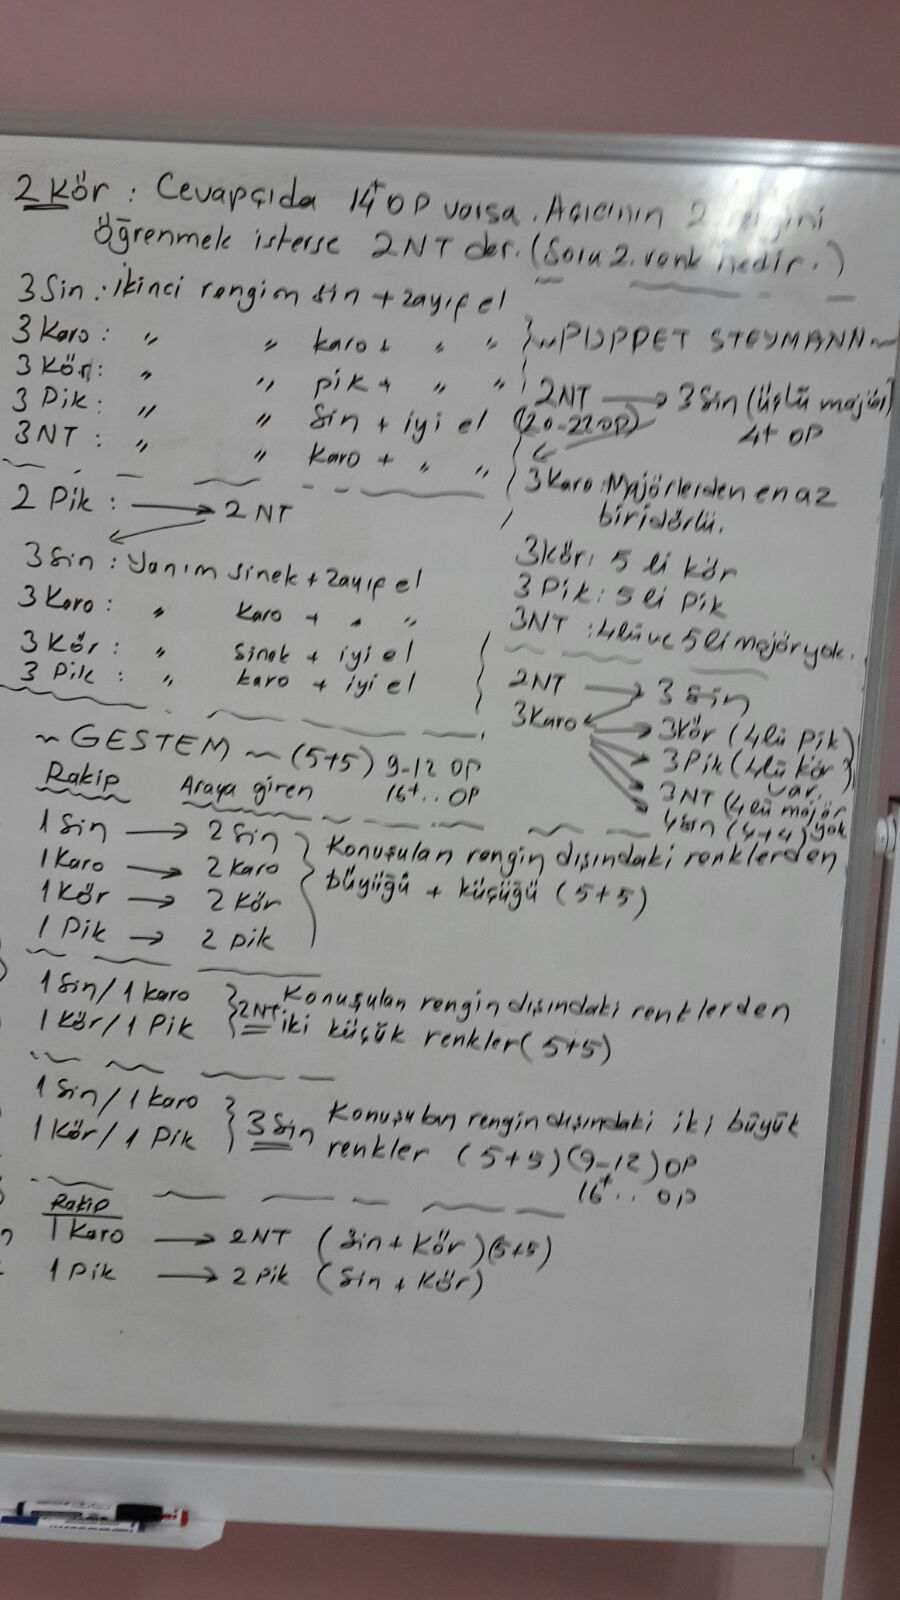 2 Kör : Cevapçıda 14+ OP varsa. Açıcının 2. rengini
öğrenmek isterse 2NT der. (Soru 2. renk nedir.)
3 Sin : ikinci rengim sin + zayıf el
3 Karo : " " karo + " "
3 Kör : " " pik + " "
3 Pik : " " Sin + iyi el
3NT : " " karo + " "
2 Pik : → 2 NT
3 Sin : Yanım sinek + zayıf el
3 Karo : " karo + " "
3 Kör : " Sinek + iyi el
3 Pik : " karo + iyi el
~ PUPPET STEYMANN ~
2NT → 3 Sin (üçlü majör)
(20-22 OP) 4+ OP
3 Karo : Majörlerden en az
biri dörlü.
3kör : 5 li kör
3 Pik : 5 li pik
3NT : 4lü ve 5 li majör yok.
2NT → 3 Sin
3 Karo → 3Kör (4lü pik)
3 Pik (4lü kör
var.)
3NT (4lü majör
yok
4 sin (4+4)
~ GESTEM ~ (5+5) 9-12 OP
16+.. OP
Rakip Araya giren
1 Sin → 2 Sin
1 Karo → 2 Karo
1 Kör → 2 Kör
1 Pik → 2 pik
Konuşulan rengin dışındaki renklerden
büyüğü + küçüğü (5+5)
1 Sin / 1 Karo
1 Kör / 1 Pik
2NT Konuşulan rengin dışındaki renklerden
iki küçük renkler (5+5)
1 Sin / 1 Karo
1 Kör / 1 Pik
3 Sin Konuşulan rengin dışındaki iki büyük
renkler (5+5) (9-12) OP
16+.. OP
Rakip
1 Karo → 2NT (Sin + Kör) (5+5)
1 Pik → 2 pik (Sin + Kör)